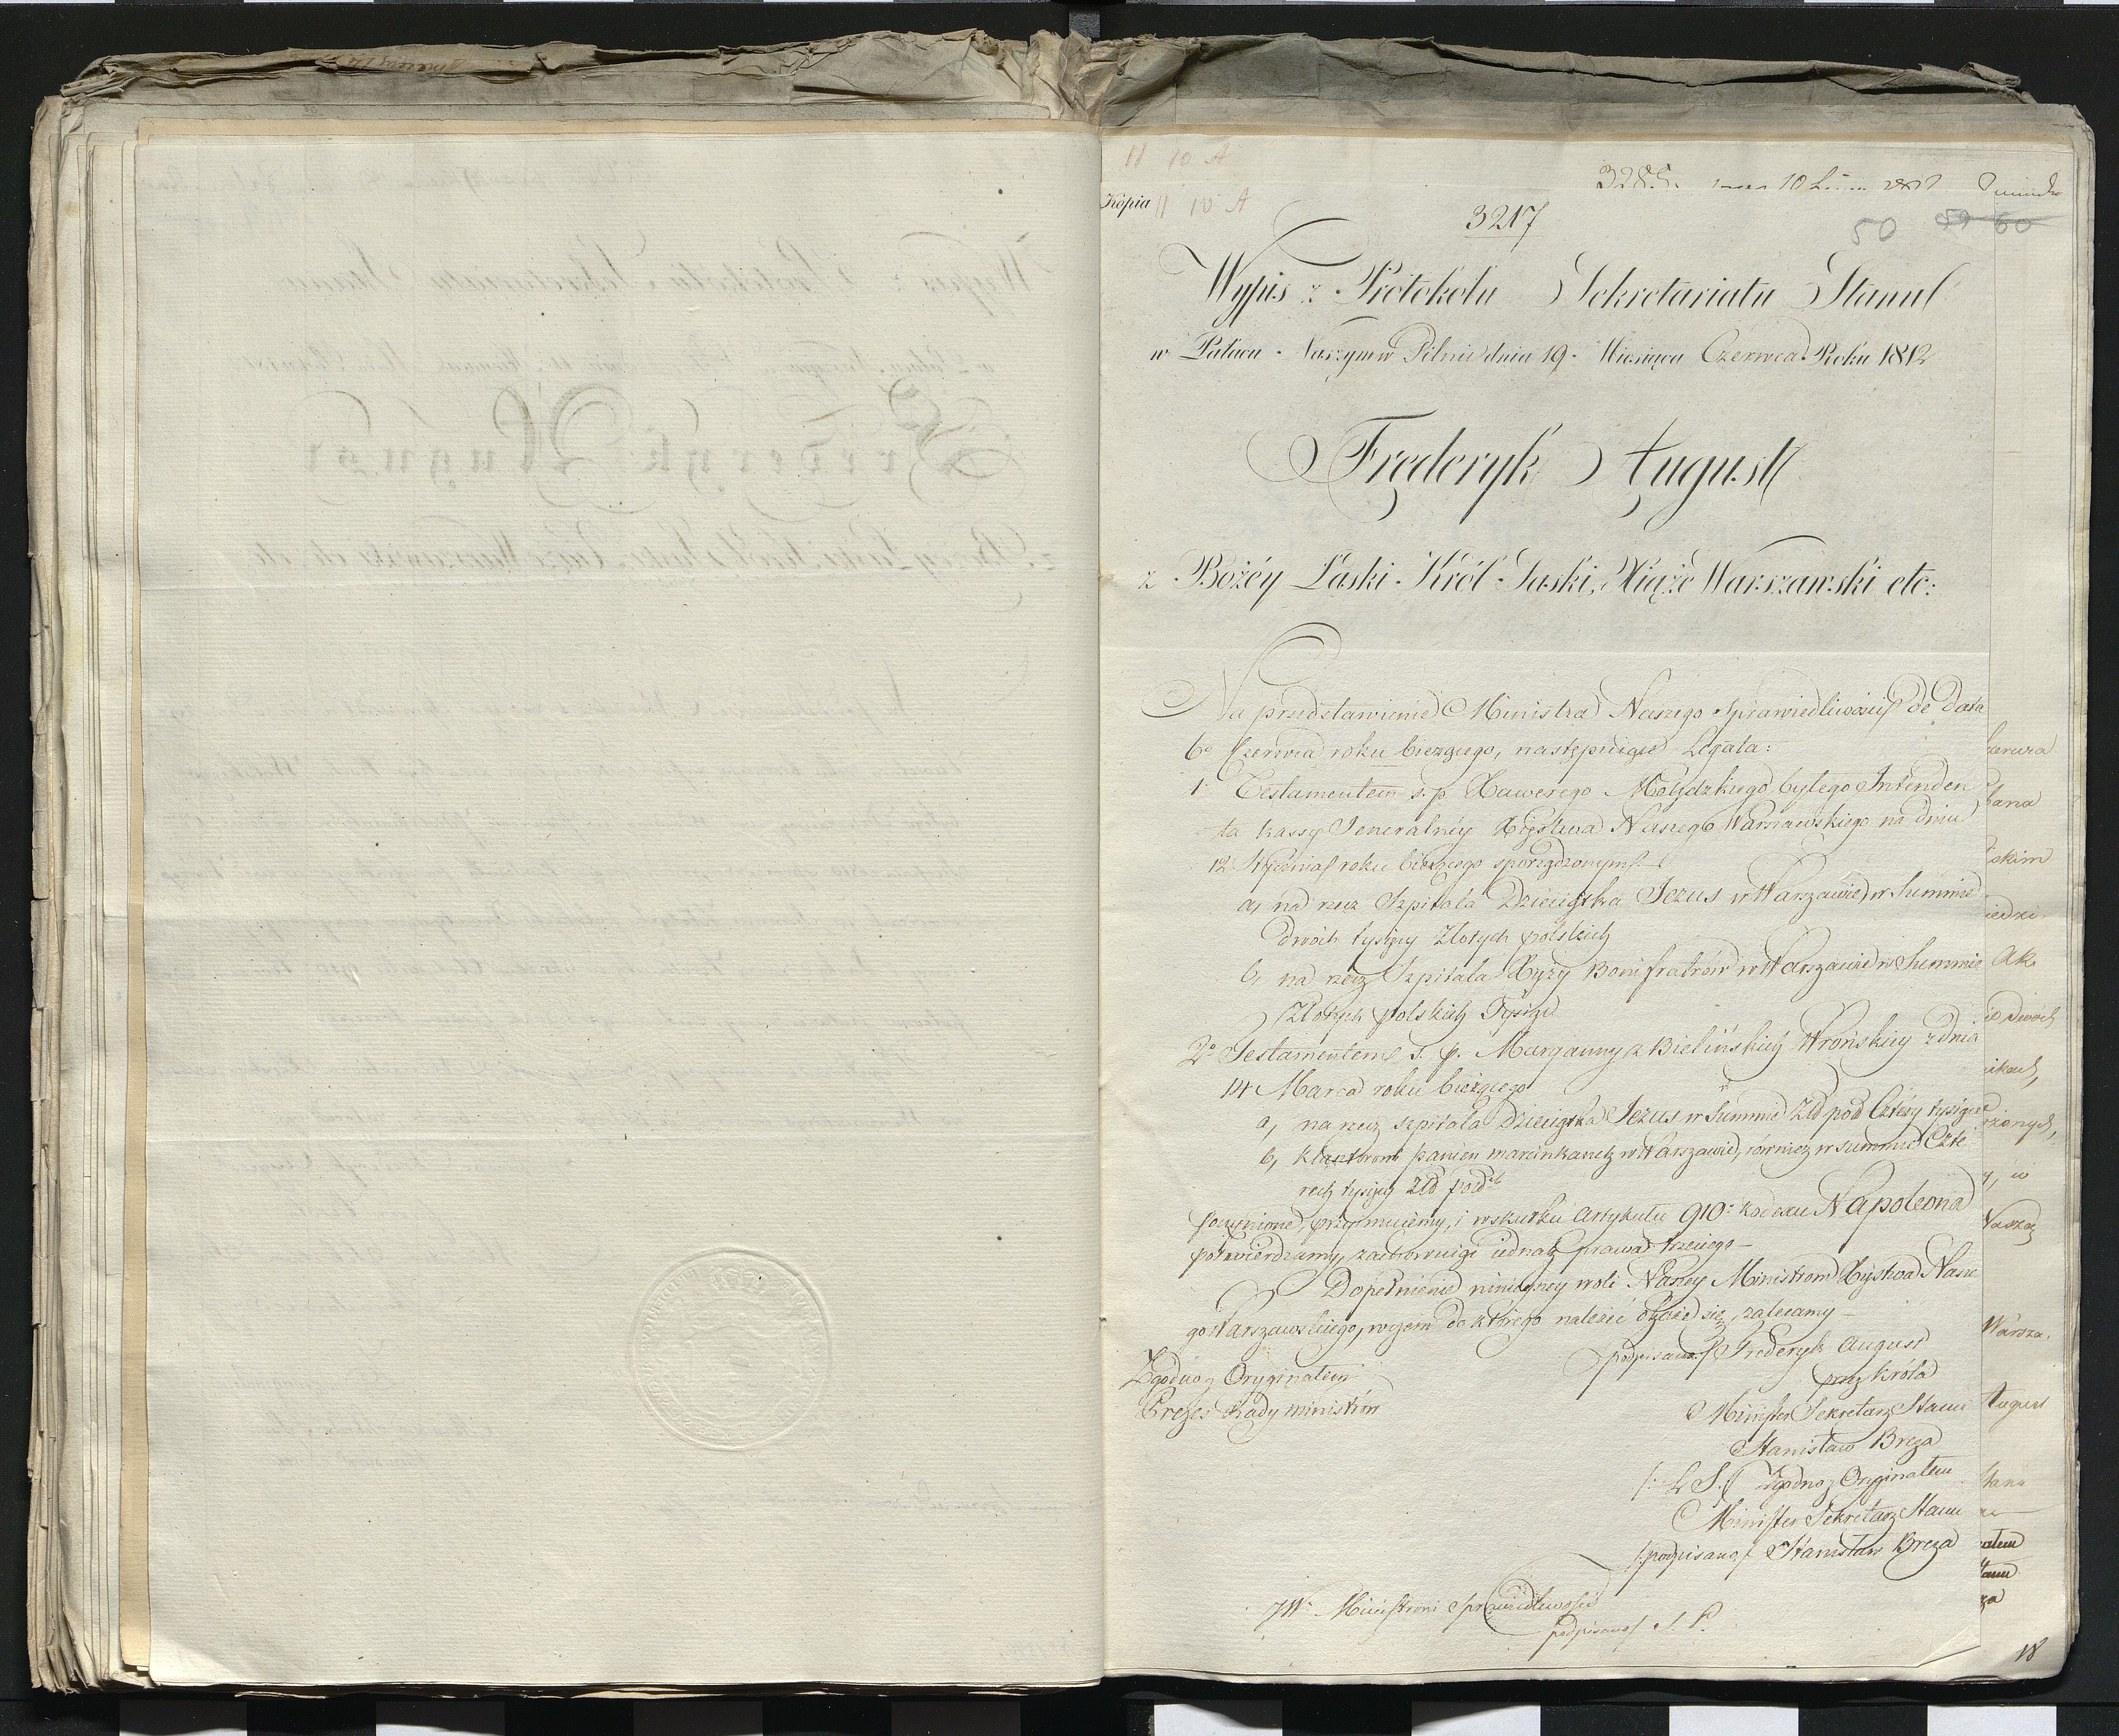 11 10 A
Kopia 11 10 A
3285. 10
3217
50 59 60
Wypis z Protokołu Sekretariatu Stanu
w Pałacu Naszym w Pilnie dnia 19. Miesiąca Czerwca Roku 1812
Fryderyk August
z Bożéy Łaski Król Saski, Xiąże Warszawski etc:
Na przedstawienie Ministra Naszego Sprawiedliwości de Data
6° Czerwca roku bieżącego, następuiące Legata:
1° Testamentem s. p. Xawerego byłego Intenden
ta kassy Jeneralnéy Xięstwa Naszego Warszawskiego na dniu
12 Stycznia roku bieżącego sporządzonym
a, na rzecz Szpitala Dzieciątka Jezus w Warszawie w Summie
dwóch tysięcy Złotych polskich
b, na rzecz Szpitala Xięży Bonifratrów w Warszawie w Summie
Złotych polskich Tysiąc
2° Testamentem s. p. Maryanny z Bielińskich Wrońskiey z dnia
14 Marca roku bieżącego
a, na rzecz szpitala Dzieciątka Jezus w Summie Złł poll Cztery tysiące
b, klasztorowi panien marcinkanek w Warszawie, również w summie Czte
rech tysięcy Złł poll
poczynione, przyimuiemy, i w skutku artykułu 910° kodexu Napoleona
potwierdzamy, zachowuiąc iednak prawa trzeciego —
Dopełnienie ninieyszey woli Naszey Ministrom Xięstwa Nasze
go Warszawskiego, w czem do którego należeć będzie się, zalecamy —
podpisano Fryderyk August
Zgodno z Oryginałem
przez Króla
Prezes Rady Ministrów
Minister Sekretarz Stanu
Stanisław Breza
/: L. S. :/ Zgodno z Oryginałem
Minister Sekretarz Stanu
/: podpisano :/ Stanisław Breza
JW. Ministrowi Sprawiedliwości
podpisano S. P.
18